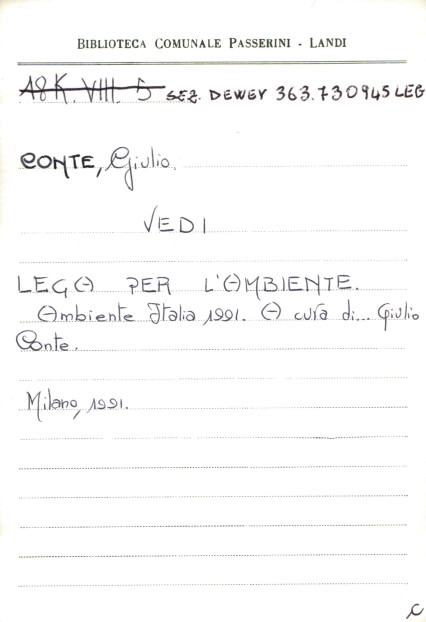 BIBLIOTECA COMUNALE PASSERINI - LANDI
A8K. VIII. 5 SEZ. DEWEY 363.730945 LEG
CONTE, Giulio.
VEDI
LEGA PER L'AMBIENTE.
Ambiente Italia 1991. A cura di... Giulio
Conte.
Milano, 1991.
C